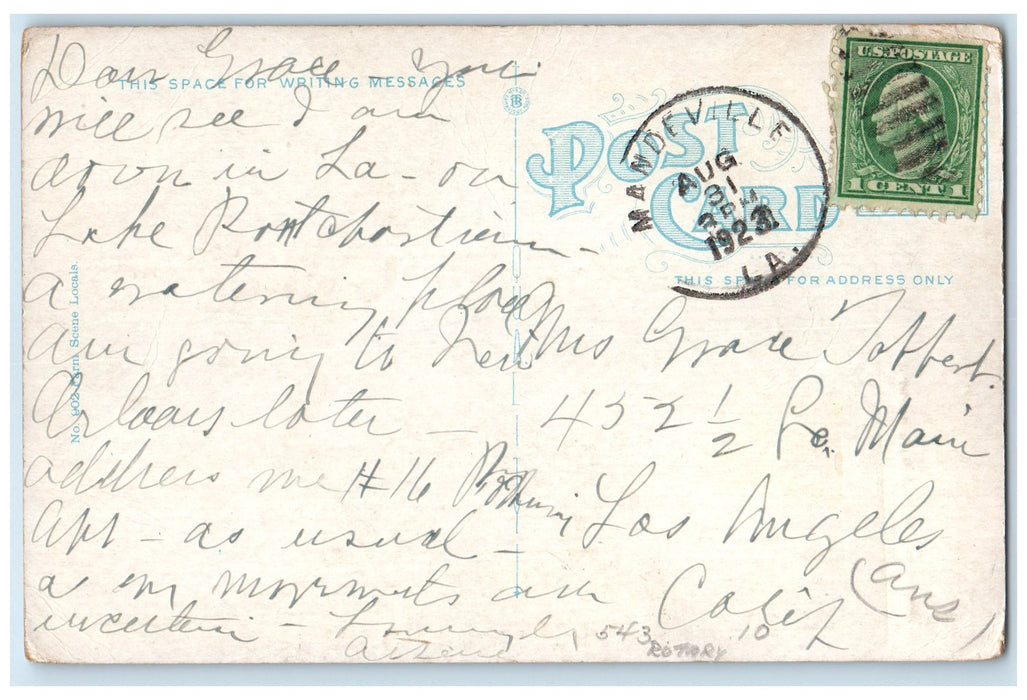 Dear Grace - You
THIS SPACE FOR WRITING MESSAGES
will see I am
down in La - on
Lake Pontchartrain -
a watering place
am going to New
Orleans later -
address me # 16
Apt - as usual -
as my movements are
uncertain -
No. 902-Farm Scene Locals.
POST CARD
THIS SPACE FOR ADDRESS ONLY
MANDEVILLE
AUG
31
PM
1923
LA.
U.S. POSTAGE
1 CENT 1
Mrs Grace Toffert
452 1/2 So. Main
Los Angeles
Calif
(Ans)
543
10
ROTARY